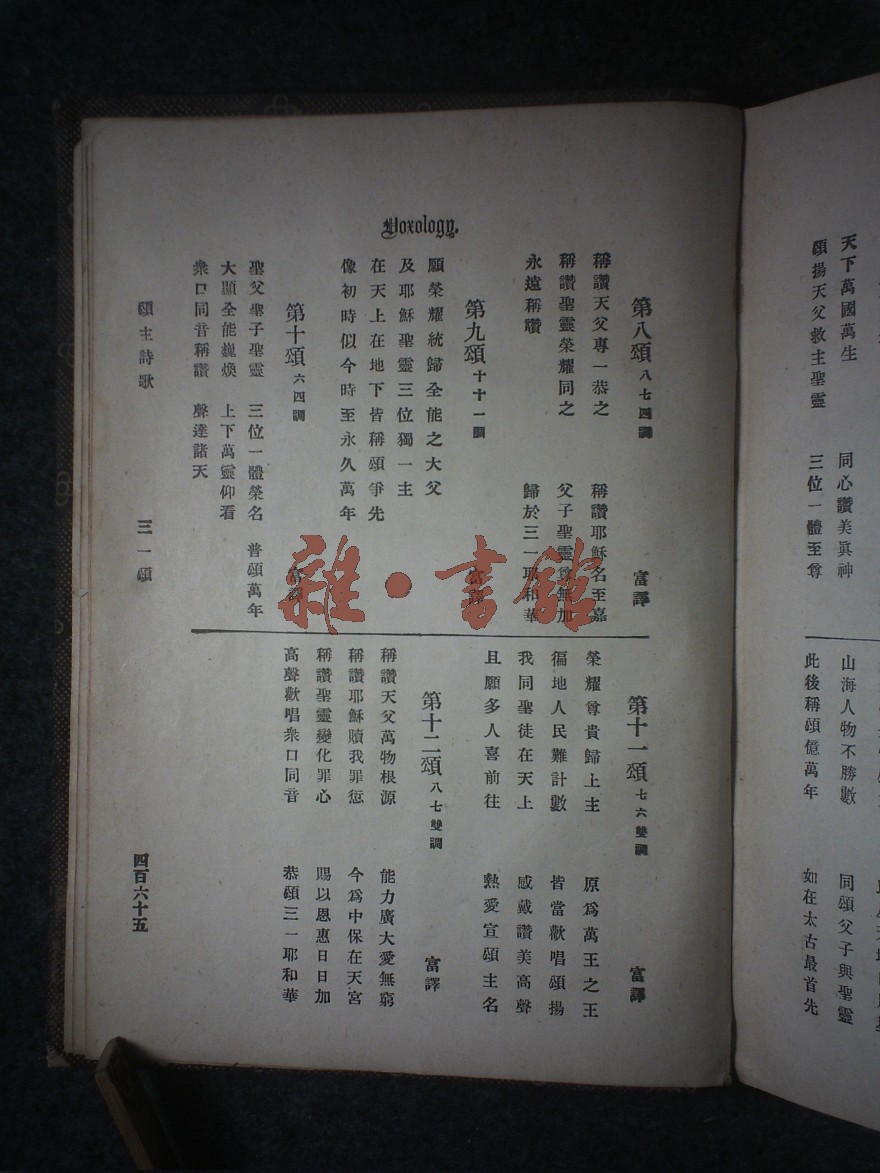 天下萬國萬生 同心讚美眞神
頌揚天父救主聖靈 三位一體至尊
山海人物不勝數 同頌父子與聖靈
此後稱頌億萬年 如在太古最首先
Doxology.
第八頌 八七四調 富譯
稱讚天父專一恭之 稱讚耶穌名至嘉
稱讚聖靈榮耀同之 父子聖靈尊無加
永遠稱讚 歸於三一耶和華
第九頌 十十一調 富譯
願榮耀統歸全能之大父
及耶穌聖靈三位獨一主
在天上在地下皆稱頌爭先
像初時似今時至永久萬年
第十頌 六四調 富譯
聖父聖子聖靈 三位一體榮名 普頌萬年
大顯全能巍煥 上下萬靈仰看
衆口同音稱讚 聲達諸天
第十一頌 七六雙調 富譯
榮耀尊貴歸上主 原爲萬王之王
徧地人民難計數 皆當歡唱頌揚
我同聖徒在天上 感戴讚美高聲
且願多人喜前往 熱愛宣頌主名
第十二頌 八七雙調 富譯
稱讚天父萬物根源 能力廣大愛無窮
稱讚耶穌贖我罪愆 今爲中保在天宮
稱讚聖靈變化罪心 賜以恩惠日日加
高聲歡唱衆口同音 恭頌三一耶和華
頌主詩歌 三一頌 四百六十五
雜·書館